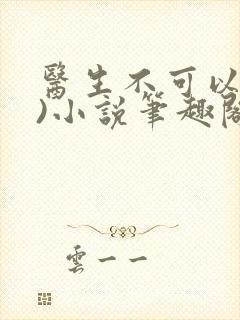 醫生不可以
)小說筆趣閣
雲一一